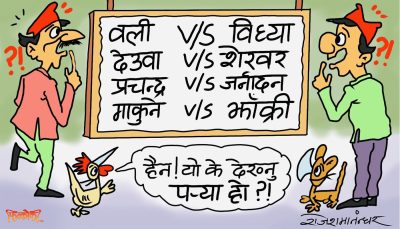 ?!
?!
वली V/S विध्या
देउवा V/S शेखर
प्रचन्द्र V/S जर्नादन
माकुने V/S झाँक्री
हैन! यो के देख्नु
पर्‍या हो ?!
RL
राजेशमानन्धर